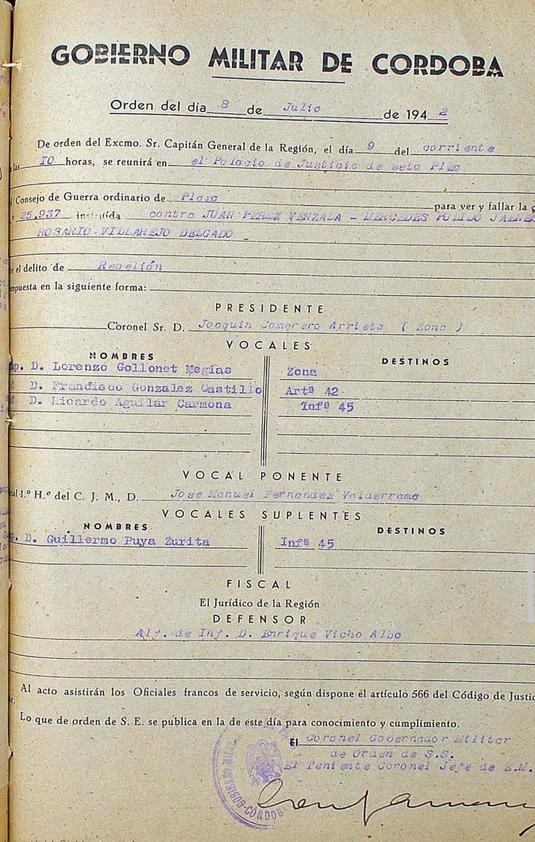 GOBIERNO MILITAR DE CORDOBA
Orden del día 8 de Julio de 194 2
De orden del Excmo. Sr. Capitán General de la Región, el día 9 del corriente
las 10 horas, se reunirá en el Palacio de Justicia de esta Plza
Consejo de Guerra ordinario de Plaza para ver y fallar la
25.937 instruída contra JUAN PEREZ VENZALA - MERCEDES PULIDO
ROSARIO VILLAREJO DELGADO
el delito de Rebelión
mpuesta en la siguiente forma:
PRESIDENTE
Coronel Sr. D. Joaquin Camarero Arrieta ( Zona )
VOCALES
NOMBRES DESTINOS
p. D. Lorenzo Gollonet Megías Zona
D. Francisco Gonzalez Castillo Artª 42
D. Ricardo Aguilar Carmona Infª 45
VOCAL PONENTE
1.º H.º del C. J. M., D. Jose Manuel Fernandez Valderrama
VOCALES SUPLENTES
NOMBRES DESTINOS
p. D. Guillermo Puya Zurita Infª 45
FISCAL
El Jurídico de la Región
DEFENSOR
Alf. de Inf. D. Enrique Vicho Albo
Al acto asistirán los Oficiales francos de servicio, según dispone el artículo 566 del Código de Justic
Lo que de orden de S. E. se publica en la de este día para conocimiento y cumplimiento.
El Coronel Gobernador Militar
de Orden de S.S.
El Teniente Coronel Jefe de E.M.